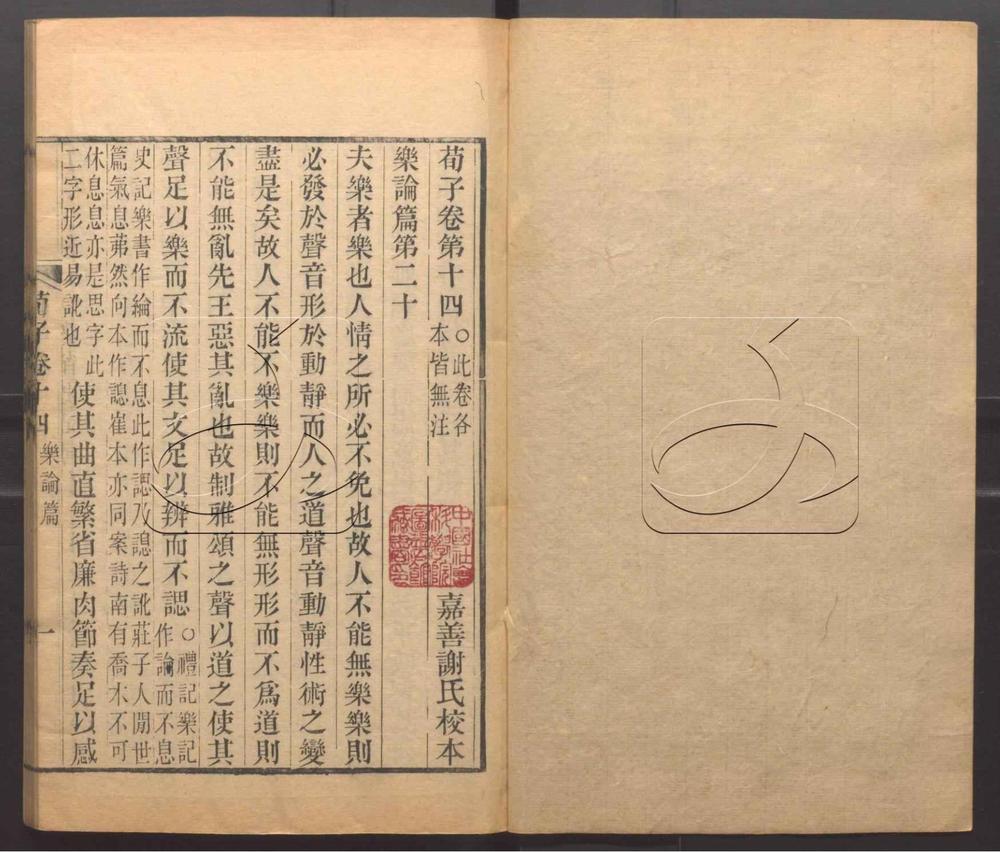 荀子卷第十四
○此卷各
本皆無注
嘉善謝氏校本
中國社會
科學院
圖書館
藏書印
樂論篇第二十
夫樂者樂也人情之所必不免也故人不能無樂樂則
必發於聲音形於動靜而人之道聲音動靜性術之變
盡是矣故人不能不樂樂則不能無形形而不爲道則
不能無亂先王惡其亂也故制雅頌之聲以道之使其
聲足以樂而不流使其文足以辨而不認
○禮記樂記
作論而不息
史記樂書作綸而不息此作認乃諰之訛莊子人閒世
篇氣息茀然向本作諰崔本亦同案詩南有喬木不可
休息息亦是思字此
二字形近易訛也
使其曲直繁省廉肉節奏足以感
荀子卷十四
樂論篇
一